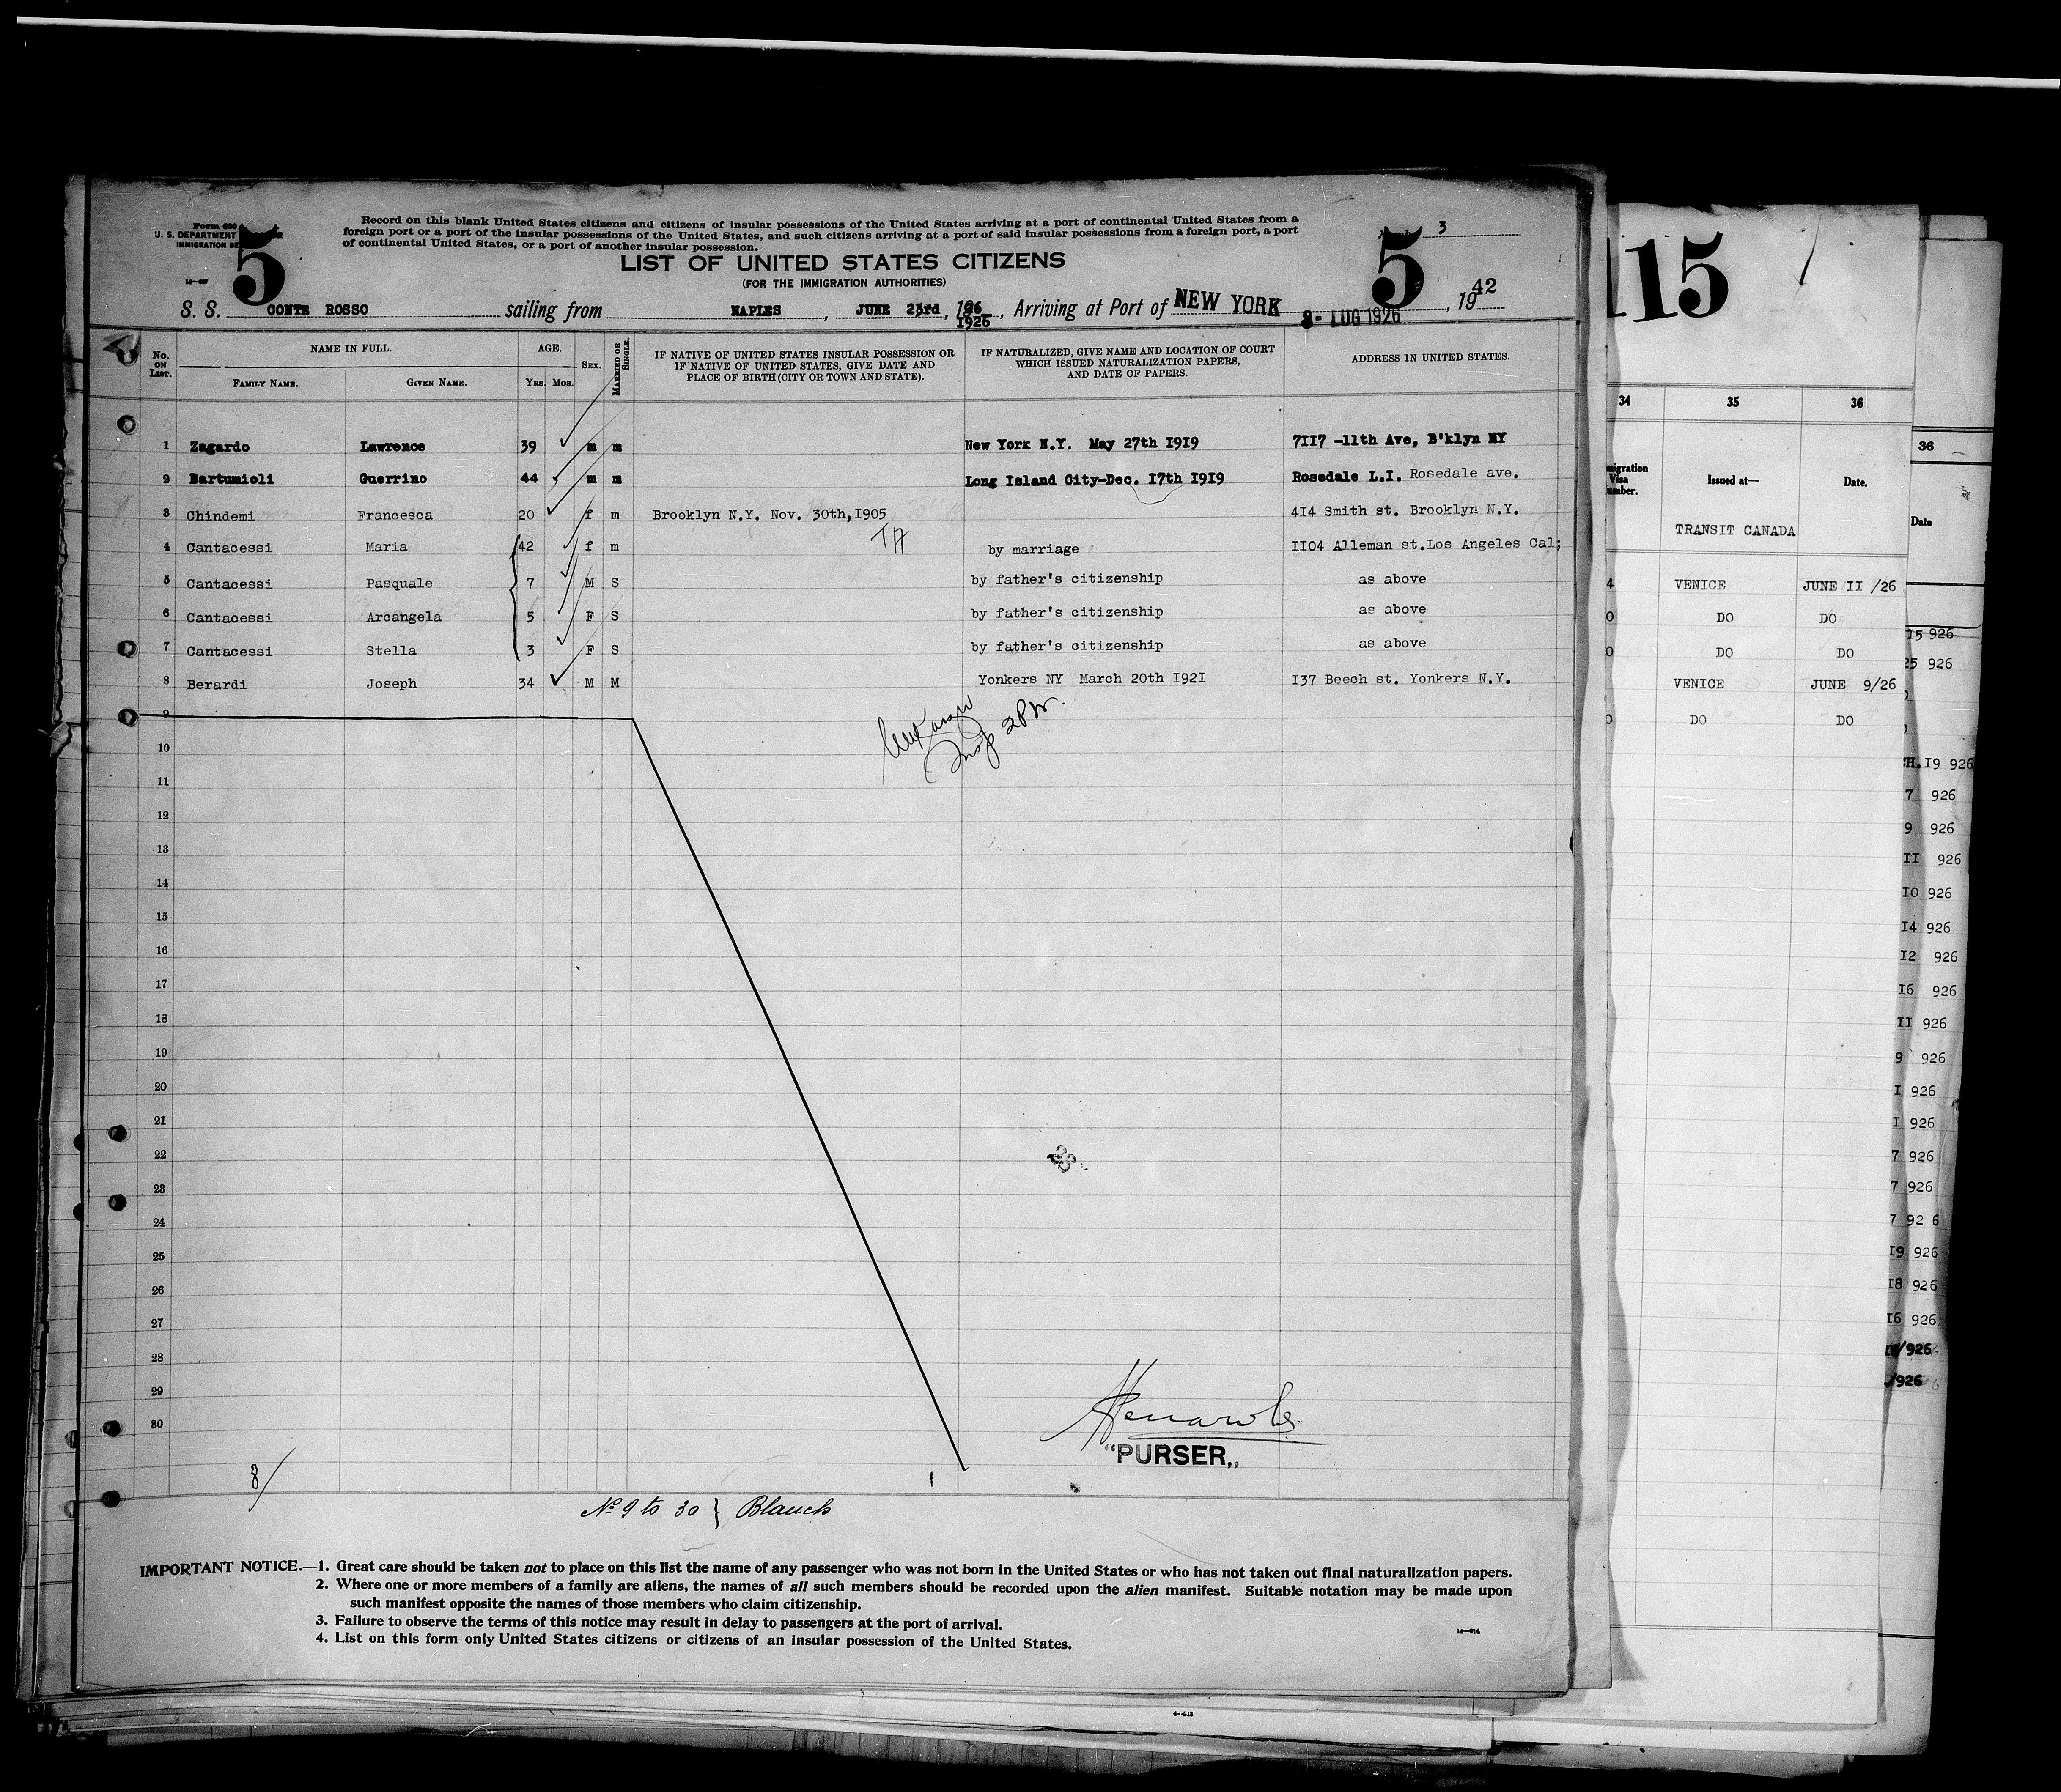 Record on this blank United States citizens and citizens of insular possessions of the United States arriving at a port of continental United States from a
foreign port or a port of the insular possessions of the United States, and such citizens arriving at a port of said insular possessions from a foreign port, a port
of continental United States, or a port of another insular possession.
Form 630
U. S. DEPARTMENT
IMMIGRATION
5
5
3
LIST OF UNITED STATES CITIZENS
(FOR THE IMMIGRATION AUTHORITIES)
S. S. CONTE ROSSO sailing from NAPLES, JUNE 23rd, 1926 1926, Arriving at Port of NEW YORK 8- LUG 1926, 1942
No. ON LIST. NAME IN FULL. AGE. SEX. MARRIED OR SINGLE.
FAMILY NAME. GIVEN NAME. YRS. MOS.
IF NATIVE OF UNITED STATES INSULAR POSSESSION OR
IF NATIVE OF UNITED STATES, GIVE DATE AND
PLACE OF BIRTH (CITY OR TOWN AND STATE).
IF NATURALIZED, GIVE NAME AND LOCATION OF COURT
WHICH ISSUED NATURALIZATION PAPERS,
AND DATE OF PAPERS.
ADDRESS IN UNITED STATES.
1 Zagardo Lawrence 39 m m New York N.Y. May 27th I9I9 7II7 -11th Ave, B'klyn NY
2 Bartumioli Guerrino 44 m m Long Island City-Dec. I7th I9I9 Rosedale L.I. Rosedale ave.
3 Chindemi Francesca 20 f m Brooklyn N.Y. Nov. 30th,I905 4I4 Smith st. Brooklyn N.Y.
TA
4 Cantacessi Maria 42 f m by marriage II04 Alleman st.Los Angeles Cal;
5 Cantacessi Pasquale 7 M S by father's citizenship as above
6 Cantacessi Arcangela 5 F S by father's citizenship as above
7 Cantacessi Stella 3 F S by father's citizenship as above
8 Berardi Joseph 34 M M Yonkers NY March 20th I92I I37 Beech st. Yonkers N.Y.
9
10
11
12
13
14
15
16
17
18
19
20
21
22
23
24
25
26
27
28
29
30
"PURSER,,
8/
No 9 to 30 } Blanck
IMPORTANT NOTICE.—1. Great care should be taken not to place on this list the name of any passenger who was not born in the United States or who has not taken out final naturalization papers.
2. Where one or more members of a family are aliens, the names of all such members should be recorded upon the alien manifest. Suitable notation may be made upon
such manifest opposite the names of those members who claim citizenship.
3. Failure to observe the terms of this notice may result in delay to passengers at the port of arrival.
4. List on this form only United States citizens or citizens of an insular possession of the United States.
115
34 35 36
Issued at— Date.
TRANSIT CANADA
VENICE JUNE II /26
DO DO
DO DO
VENICE JUNE 9/26
DO DO
36
Date
I5 926
25 926
H.I9 926
7 926
9 926
II 926
I0 926
I4 926
I2 926
I6 926
II 926
9 926
I 926
I 926
7 926
7 926
7 92 6
I9 926
I8 926
I6 926
/926
/926